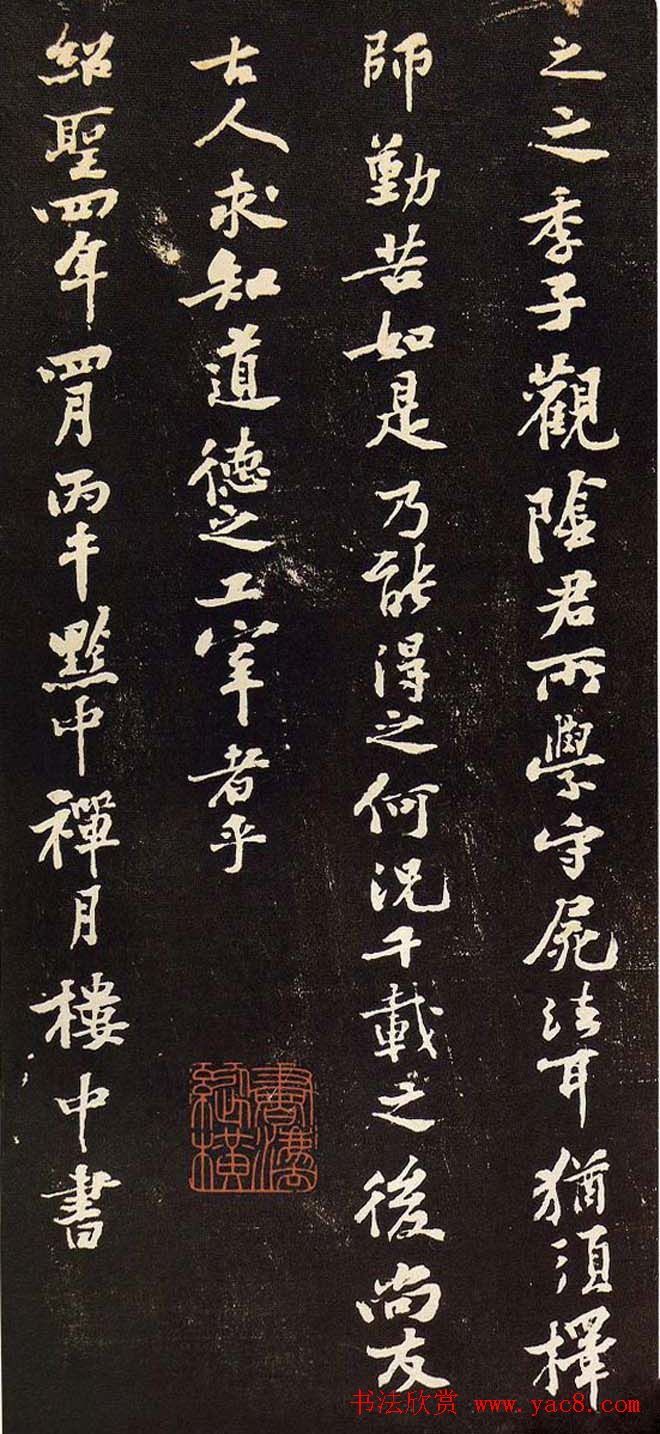 之之季子觀陰君所學守屍法耳猶須擇
師勤苦如是乃能得之何況千載之後尚友
古人求知道德之工宰者乎
紹聖四年四月丙午黔中禪月樓中書
書法縱橫
书法欣赏 www.yac8.com